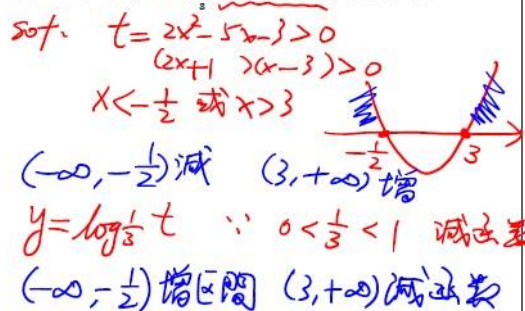 sol: t = 2x² - 5x - 3 > 0
(2x+1)(x-3) > 0
x < -1/2 或 x > 3
-1/2 3
(-∞, -1/2) 减 (3, +∞) 增
y = log_{1/3} t ∵ 0 < 1/3 < 1 减函数
(-∞, -1/2) 增区間 (3, +∞) 减函数